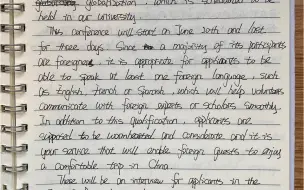 globalization, which is scheduled to be
held in our university.
This conference will start on June 20th and last
for three days. Since a majority of its participants
are foreigners, it is appropriate for applicants to be
able to speak at least one foreign language, such
as English, French or Spanish, which will help volunteers
communicate with foreign experts or scholars smoothly.
In addition to this qualification, applicants are
supposed to be warmhearted and considerate and it is
your service that will enable foreign guests to enjoy
a comfortable trip in China.
There will be an interview for applicants in the